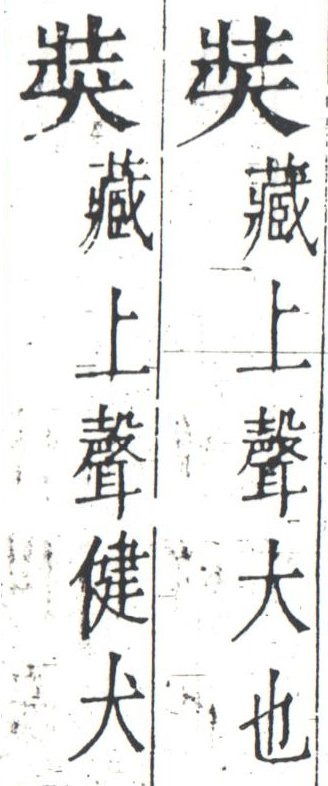 奘藏上聲大也
奘藏上聲健犬